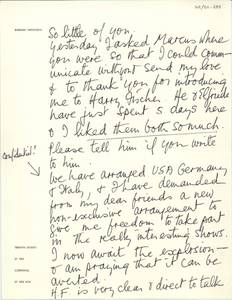 BARBARA HEPWORTH
So little of you.
Yesterday I asked Marcus where
you were so that I could comm-
unicate without send my love
& to thank you for introducing
me to Harry Fischer. He & Elfride
have just spent 5 days here
& I liked them both so much.
Please tell him if you write
to him.
confidential!
We have arranged USA Germany
& Italy, & I have demanded
from my dear friends a new
non-exclusive arrangement to
give me freedom to take part
in the really interesting shows.
I now await the explosion –
& am praying that it can be
averted.
H.F. is very clear & direct to talk
TREWYN STUDIO
ST IVES
CORNWALL